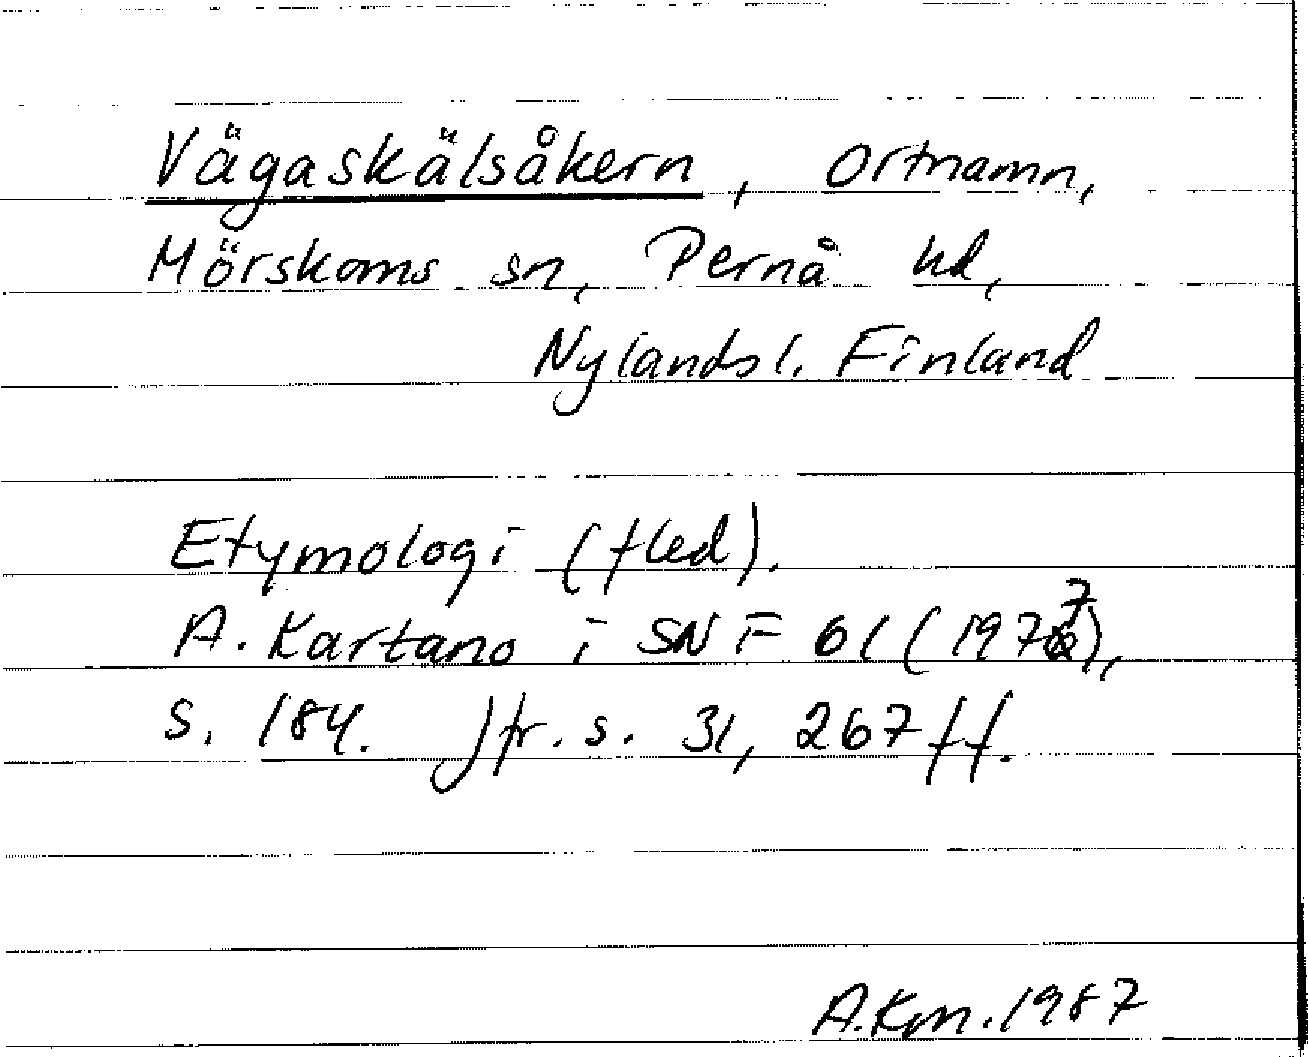 Vägaskälsåkern, ortnamn,
Mörskoms sn, Pernå hd,
Nylandsl. Finland
Etymologi (fled).
A. Kartano i SNF 61 (1977),
s. 184. Jfr. s. 31, 267 ff.
A.Km. 1987